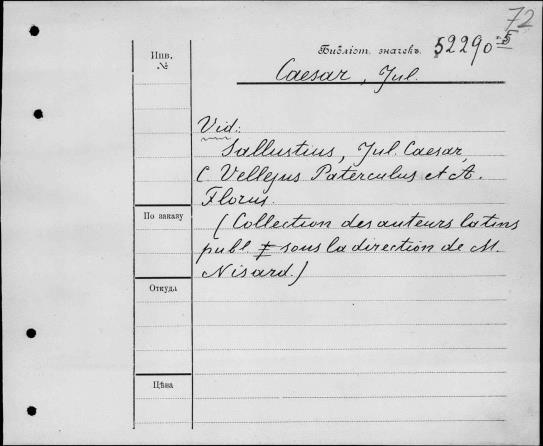 72
Инв. №
Библіот. значекъ. 52290-5
Caesar, Jul.
Vid:
Sallustius, Jul. Caesar,
C. Vellejus Paterculus et A.
Florus.
(Collection des auteurs latins
По заказу
publ. sous la direction de M.
Nisard.)
Откуда
Цѣна